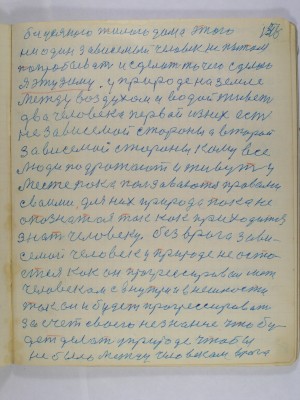 без уютного жилого дома этого
ни один зависемый человек не пытался
попробывать и сделать то чего сделано
Я этузиму. у природе на земле
между воздухом и водой живет
два человека первой из них есть
независемой стороны а второй
зависемой стороны кому все
люди подрожают и живут у
месте пока пользаваются правами
своими для них природа пока не
опознатая так как приходится
знат человеку без врага зави-
семой человек у природе не оста-
лся как он прогрессировал
человекам с внутри и внешности
так он и будет прогрессировать
за счет своего незнание что бу-
дет делать у природе чтобы
не было между человекам врага